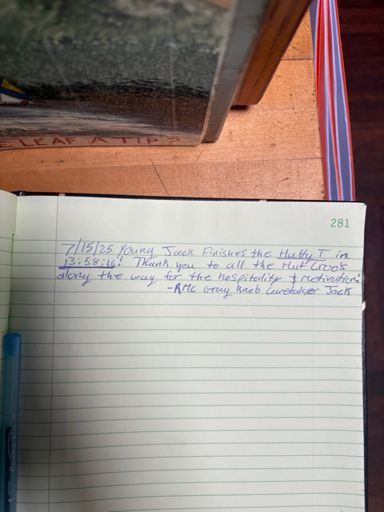 LEAF A TIP?
281
7/15/25 Young Jack Finishes the Hutty T in
13:58:16! Thank you to all the Hut Croo's
along the way for the hospitality & motivation!
-RMC Gray Knob Caretaker Jack